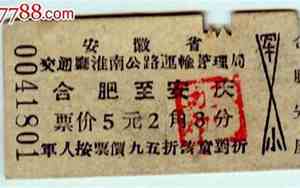 788.com
0041801
安徽省
交通廳淮南公路運輸管理局
合肥至安庆
票价5元2角8分
軍人按票價九五折孩童对折
军
小